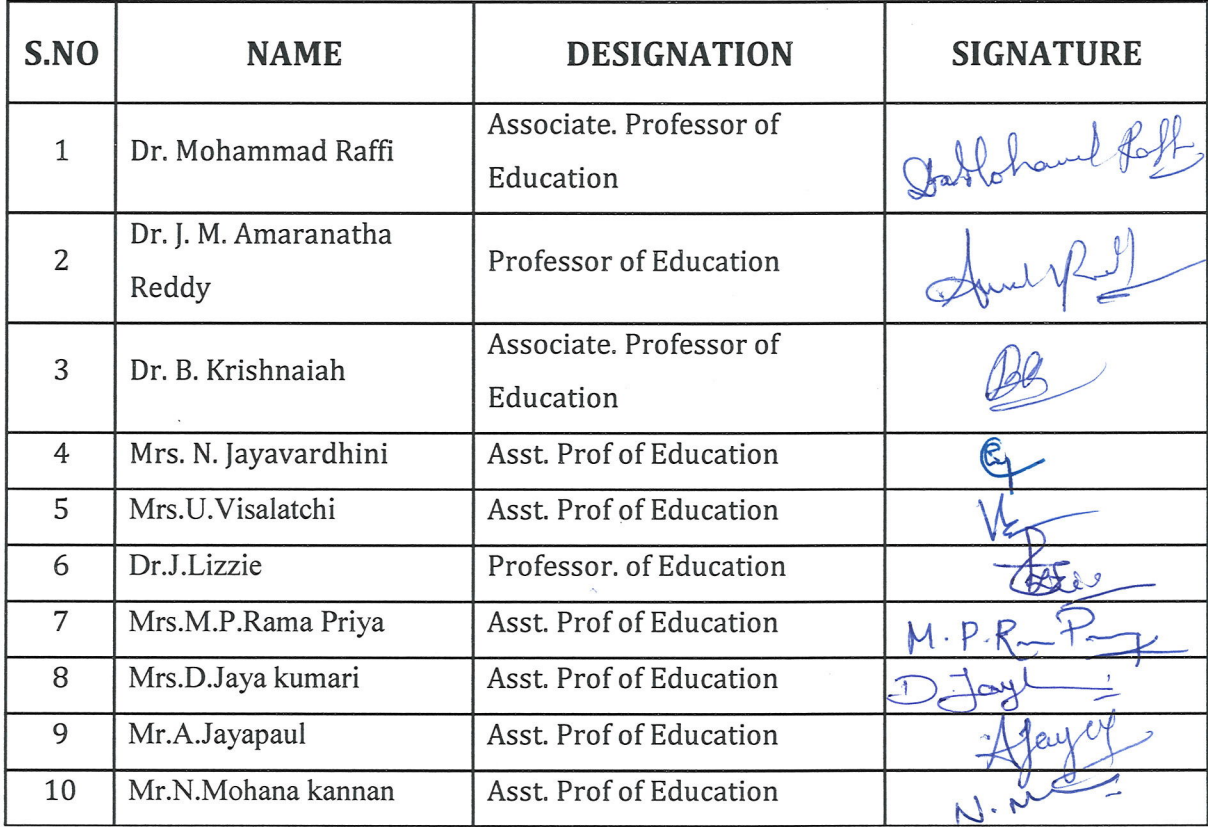 S.NO NAME DESIGNATION SIGNATURE
1 Dr. Mohammad Raffi Associate. Professor of
Education
2 Dr. J. M. Amaranatha
Reddy Professor of Education
3 Dr. B. Krishnaiah Associate. Professor of
Education
4 Mrs. N. Jayavardhini Asst. Prof of Education
5 Mrs.U.Visalatchi Asst. Prof of Education
6 Dr.J.Lizzie Professor. of Education
7 Mrs.M.P.Rama Priya Asst. Prof of Education M.P.
8 Mrs.D.Jaya kumari Asst. Prof of Education
9 Mr.A.Jayapaul Asst. Prof of Education
10 Mr.N.Mohana kannan Asst. Prof of Education